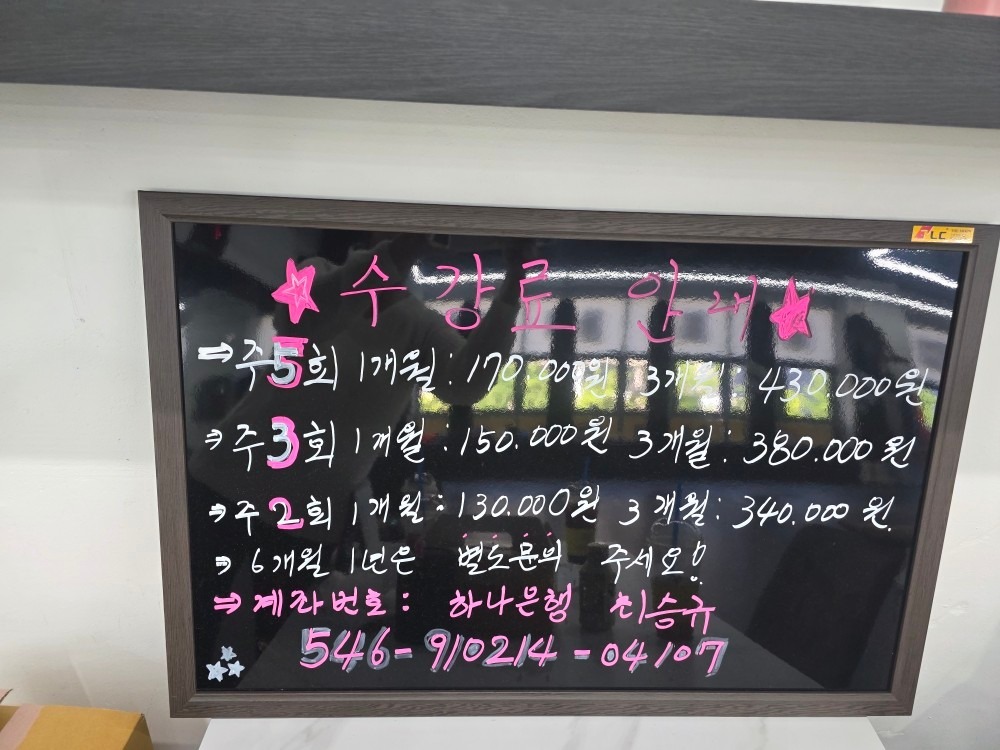 수강료 안내
⇒ 주5회 1개월 : 170.000원 3개월 : 430.000원
⇒ 주3회 1개월 : 150.000원 3개월 : 380.000원
⇒ 주2회 1개월 : 130.000원 3개월 : 340.000원
⇒ 6개월 1년은 별도문의 주세요!
⇒ 계좌번호 : 하나은행 최승규
546-910214-04107